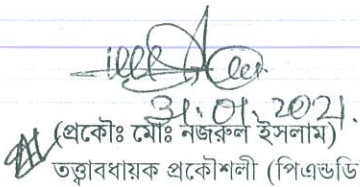 31.01.2021.
(প্রকৌঃ মোঃ নজরুল ইসলাম)
তত্ত্বাবধায়ক প্রকৌশলী (পিএন্ডডি